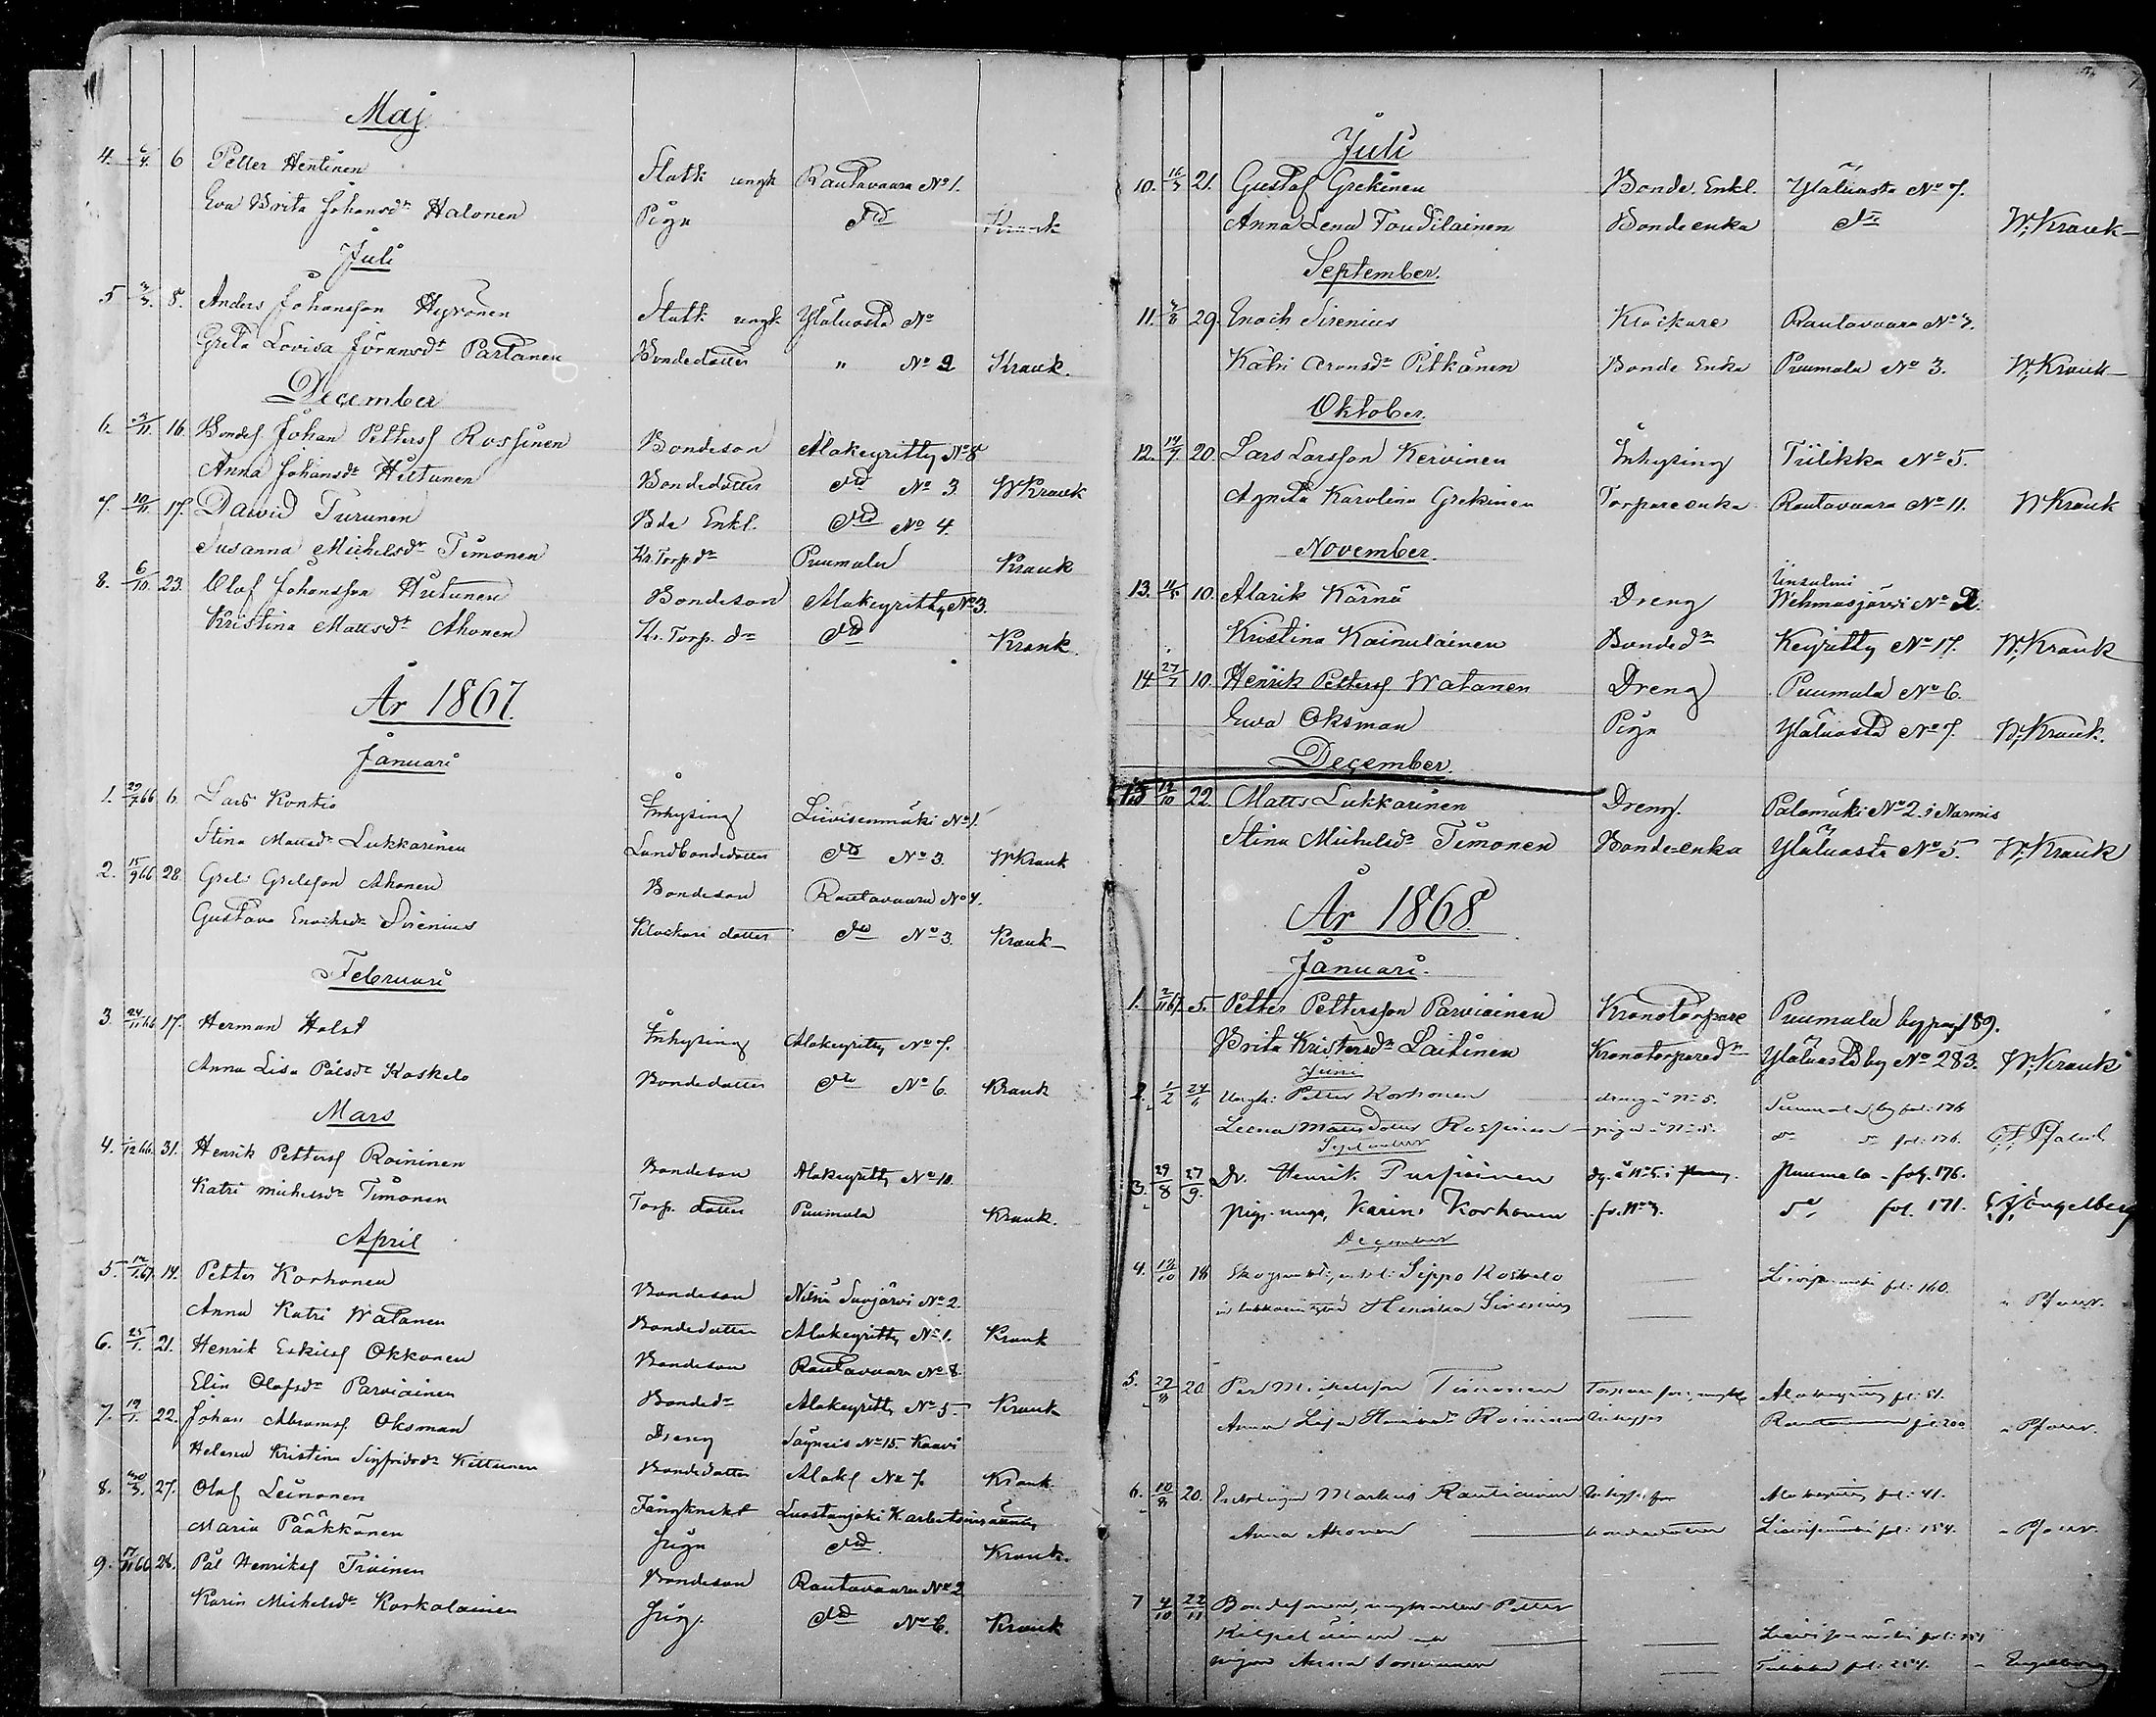 Maj
4. 6/4. 6 Petter Hentinen Statk ungk Rautavaara No 1.
Eva Brita Johansdr Halonen Piga do Krank
Juli
5 3/3. 8. Anders Johansson Hyvönen Statk ungk Yläluosta No
Greta Lovisa Göransdr Partanen Bondedotter " No 2 Krank.
December
6. 3/11. 16. Bondes Johan Petterss Rossinen Bondeson Alakeyritty No 8
Anna Johansdr Hiltunen Bondedotter do No 3 W Krank
7. 10/11 17. David Turunen Bde Enkl. do No 4.
Susanna Michelsdr Timonen Kr. Torp. dr Puumala Krank
8. 6/10. 23. Olof Johansson Hiltunen Bondeson Alakeyritty No 3.
Kristina Mattsdr Ahonen Kr. Torp. dr do Krank.
År 1867.
Januari
1. 29/7 66 6. Lars Kontio Inhysing Liivisenmäki No 1.
Stina Mattsdr Lukkarinen Landbondedotter do No 3. W Krank
2. 15/9 66 28. Grels Grelsson Ahonen Bondeson Rautavaara No 4.
Gustava Enochsdr Sirenius Klockare dotter do No 3. Krank
Februari
3. 24/11 66 17. Herman Holst Inhysing Alakeyritty No 7.
Anna Lisa Pålsdr Koskelo Bondedotter do No 6. Krank
Mars
4. 1/12 66. 31. Henrik Petterss Roininen Bondeson Alakeyritty No 10.
Katri Michelsdr Timonen Torp. dotter Puumala Krank.
April
5. 12/1.67. 14. Petter Korhonen Bondeson Nilsiä Suojärvi No 2.
Anna Katri Watanen Bondedotter Alakeyritty No 1. Krank
6. 25/1. 21. Henrik Eskilss Okkonen Bondeson Rautavaara No 8.
Elin Olofsdr Parviainen Bondedr Alakeyritty No 5. Krank
7. 19/1. 22. Johan Abramss. Oksman Dreng Säyneis No 15. Kaavi
Helena Kristina Sigfridsdr Kettunen Bondedotter Alakey No 7. Krank.
8. 30/3. 27. Olof Leinonen Fångknekt Luostanjoki
Maria Pääkkönen Piga do. Krank.
9. 17/11 66 28. Pål Henrikss Bondeson Rautavaara No 2
Karin Michelsdr Korkalainen Pig. do No 6. Krank
Juli
10. 16/3 21. Gustaf Grekinen Bonde. Enkl. Yläluosta No 7.
Anna Lena Toudilainen Bondeenka do W. Krank
September.
11. 29. Enoch Sirenius Klockare Rautavaara No 3.
Katri Aronsdr Pitkänen Bonde Enka Puumala No 3. W. Krank
Oktober.
12. 14/7. 20. Lars Larsson Kervinen Inhysing Tiilikka No 5.
Agneta Karolina Grekinen Torpareenka Rautavaara No 11. W Krank
November.
13. 10. Alarik Kärnä Dreng Wehmasjärvi No 2.
Kristina Kainulainen Bondedr Keyritty No 17. W. Krank
14. 27/7 10. Henrik Petterss Watanen Dreng Puumala No 6.
Ewa Oksman Piga Yläluosta No 7. W. Krank.
December.
15 12/10 22. Matts Lukkarinen Dreng. Palomäki No 2 i Nurmis
Stina Michelsdr Timonen Bonde-enka Yläluosta No 5. W. Krank
År 1868.
Januari.
1. 2/11 67. 5. Petter Pettersson Parviainen Kronotorpare Puumala by pag 189.
Brita Kristersdr Laitinen Kronotorparedr Yläluosta by No 283. W. Krank
Juni
2. 1/2 24/6 Ungk: Petter Korhonen dräng å No 5. Puumala by fol: 176
Leena Mattsdotter Rossinen piga å No 5. do do fol: 176.
September
3. 29/8 27/9. Dr. Henrik Purssiainen dg. å No 5. Puumala fol. 176.
pig. unga, Karin Korhonen fol. 171. Engelberg
December
4. 12/10 Seppo Koskelo fol: 160.
Henrika Sirenius
5. 27/9 20. Per Mickelsson Timonen fol: 51.
Anna Lisa Roininen fol: 200
6. 10/9 20. Markus Rautiainen fol: 41.
Anna Ahonen bondedotter fol: 154.
7 4/10 22/11 Bondesonen, ungkarlen Petter
Kilpeläinen och
pigan Anna Engelberg